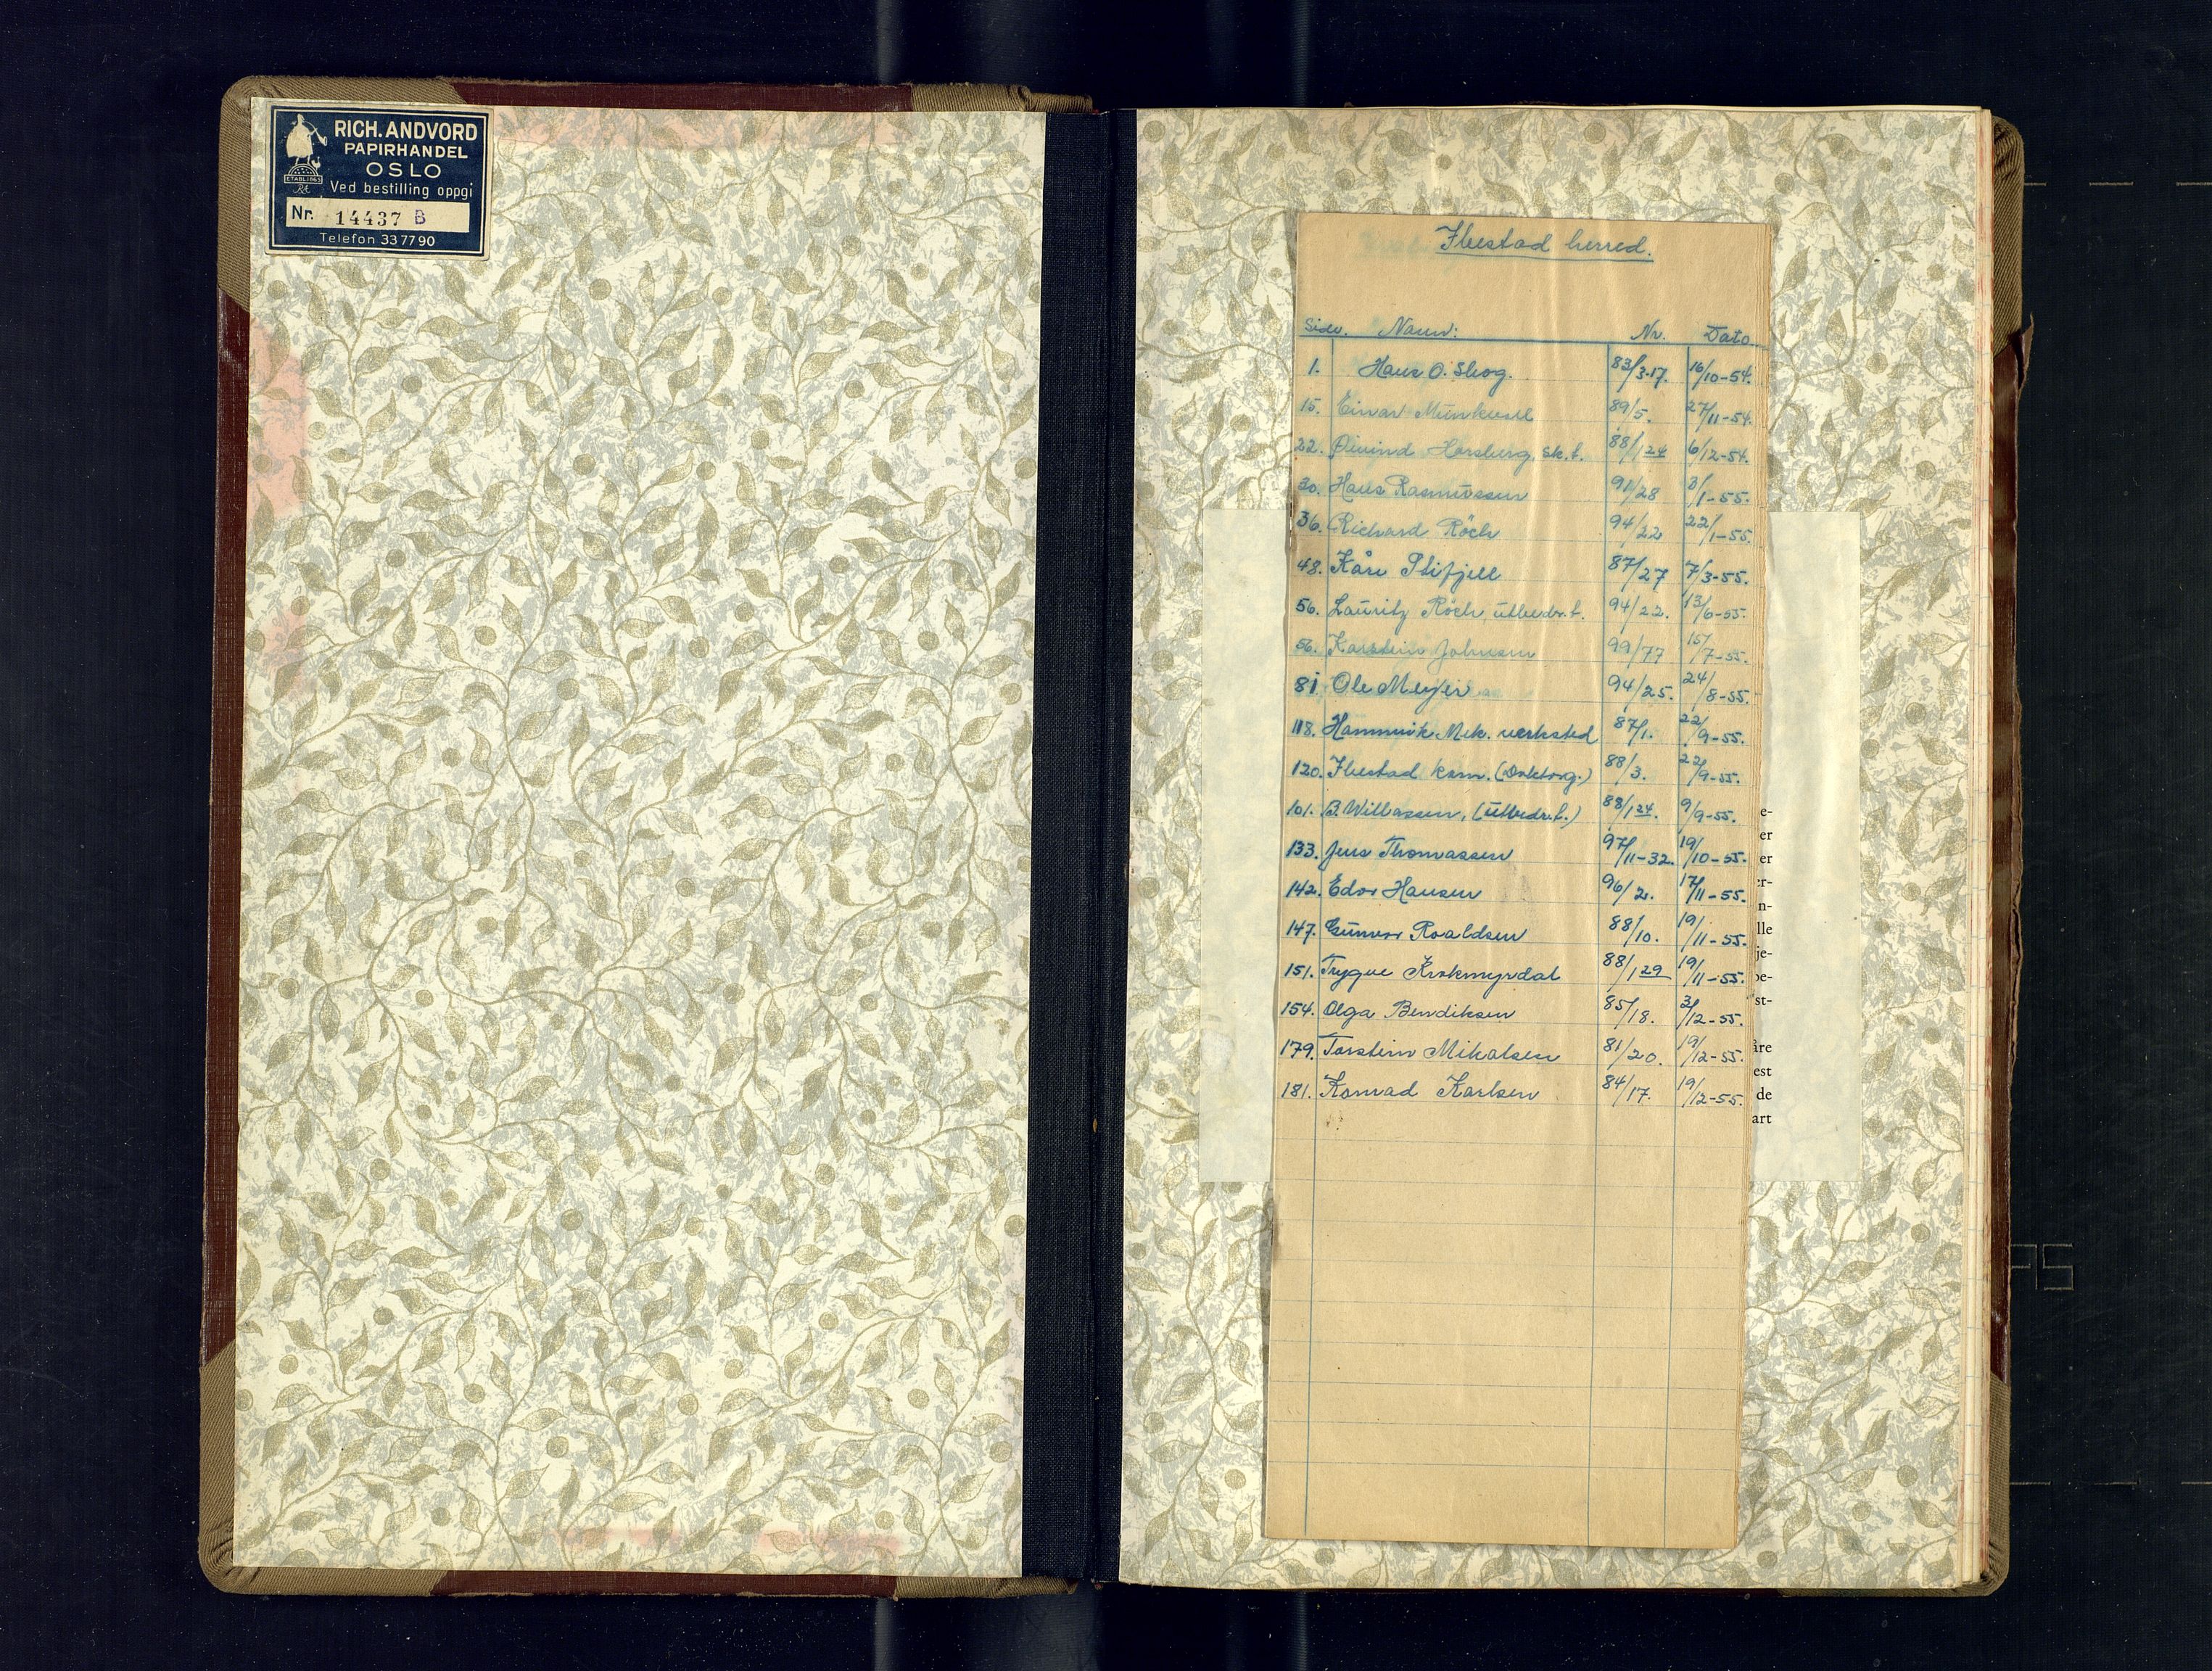 RICH. ANDVORD
PAPIRHANDEL
OSLO
ETABL. 1865
Ved bestilling oppgi
Nr. 14437 B
Telefon 337790
Ibestad herred.
Side. Navn: Nr. Dato
1. Hans O. Skog. 83/3.17. 16/10-54.
15. Einar Munkvoll 89/5. 27/11-54.
22. Øivind Horsberg, sk.f. 88/1 24 6/12-54.
30. Hans Rasmussen 91/28 8/1-55.
36. Richard Röch 94/22 22/1-55.
48. Kåre Stifjell 87/27 7/3-55.
56. Lauritz Röch utbedr.f. 94/22. 13/6-55.
56. Karstein Johnsen 99/77 15/7-55.
81 Ole Meyer 94/25. 24/8-55.
118. Hamnvik Mek. verksted 87/1. 22/9-55.
120. Ibestad kom. 88/3. 22/9-55.
101. B. Willassen, (Utbedr.f.) 88/1 24. 9/9-55.
133. Jens Thomassen 97/11-32. 19/10-55.
142. Edor Hansen 96/2. 17/11-55.
147. Gunvor Roaldsen 88/10. 19/11-55.
151. Trygve Krokmyrdal 88/1 29 19/11-55.
154. Olga Bendiksen 85/18. 3/12-55.
179. Torstein Mikalsen 81/20. 19/12-55.
181. Konrad Karlsen 84/17. 19/12-55.
e-
er
er
er-
n-
lle
je-
be-
st-
åre
est
de
art